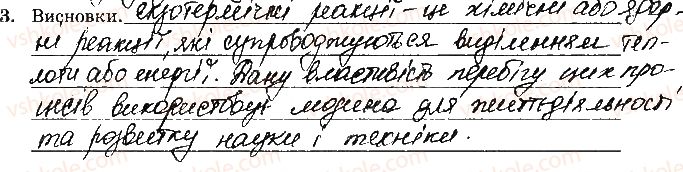 3. Висновки. Екзотермічні реакції – це хімічні або ядер-
ні реакції, які супроводжуються виділенням теп-
лоти або енергії. Дану властивість перебігу цих про-
цесів використовує людина для життєдіяльності
та розвитку науки і техніки.